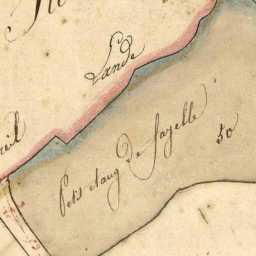 Lande
Petit etang De Sazelle
50